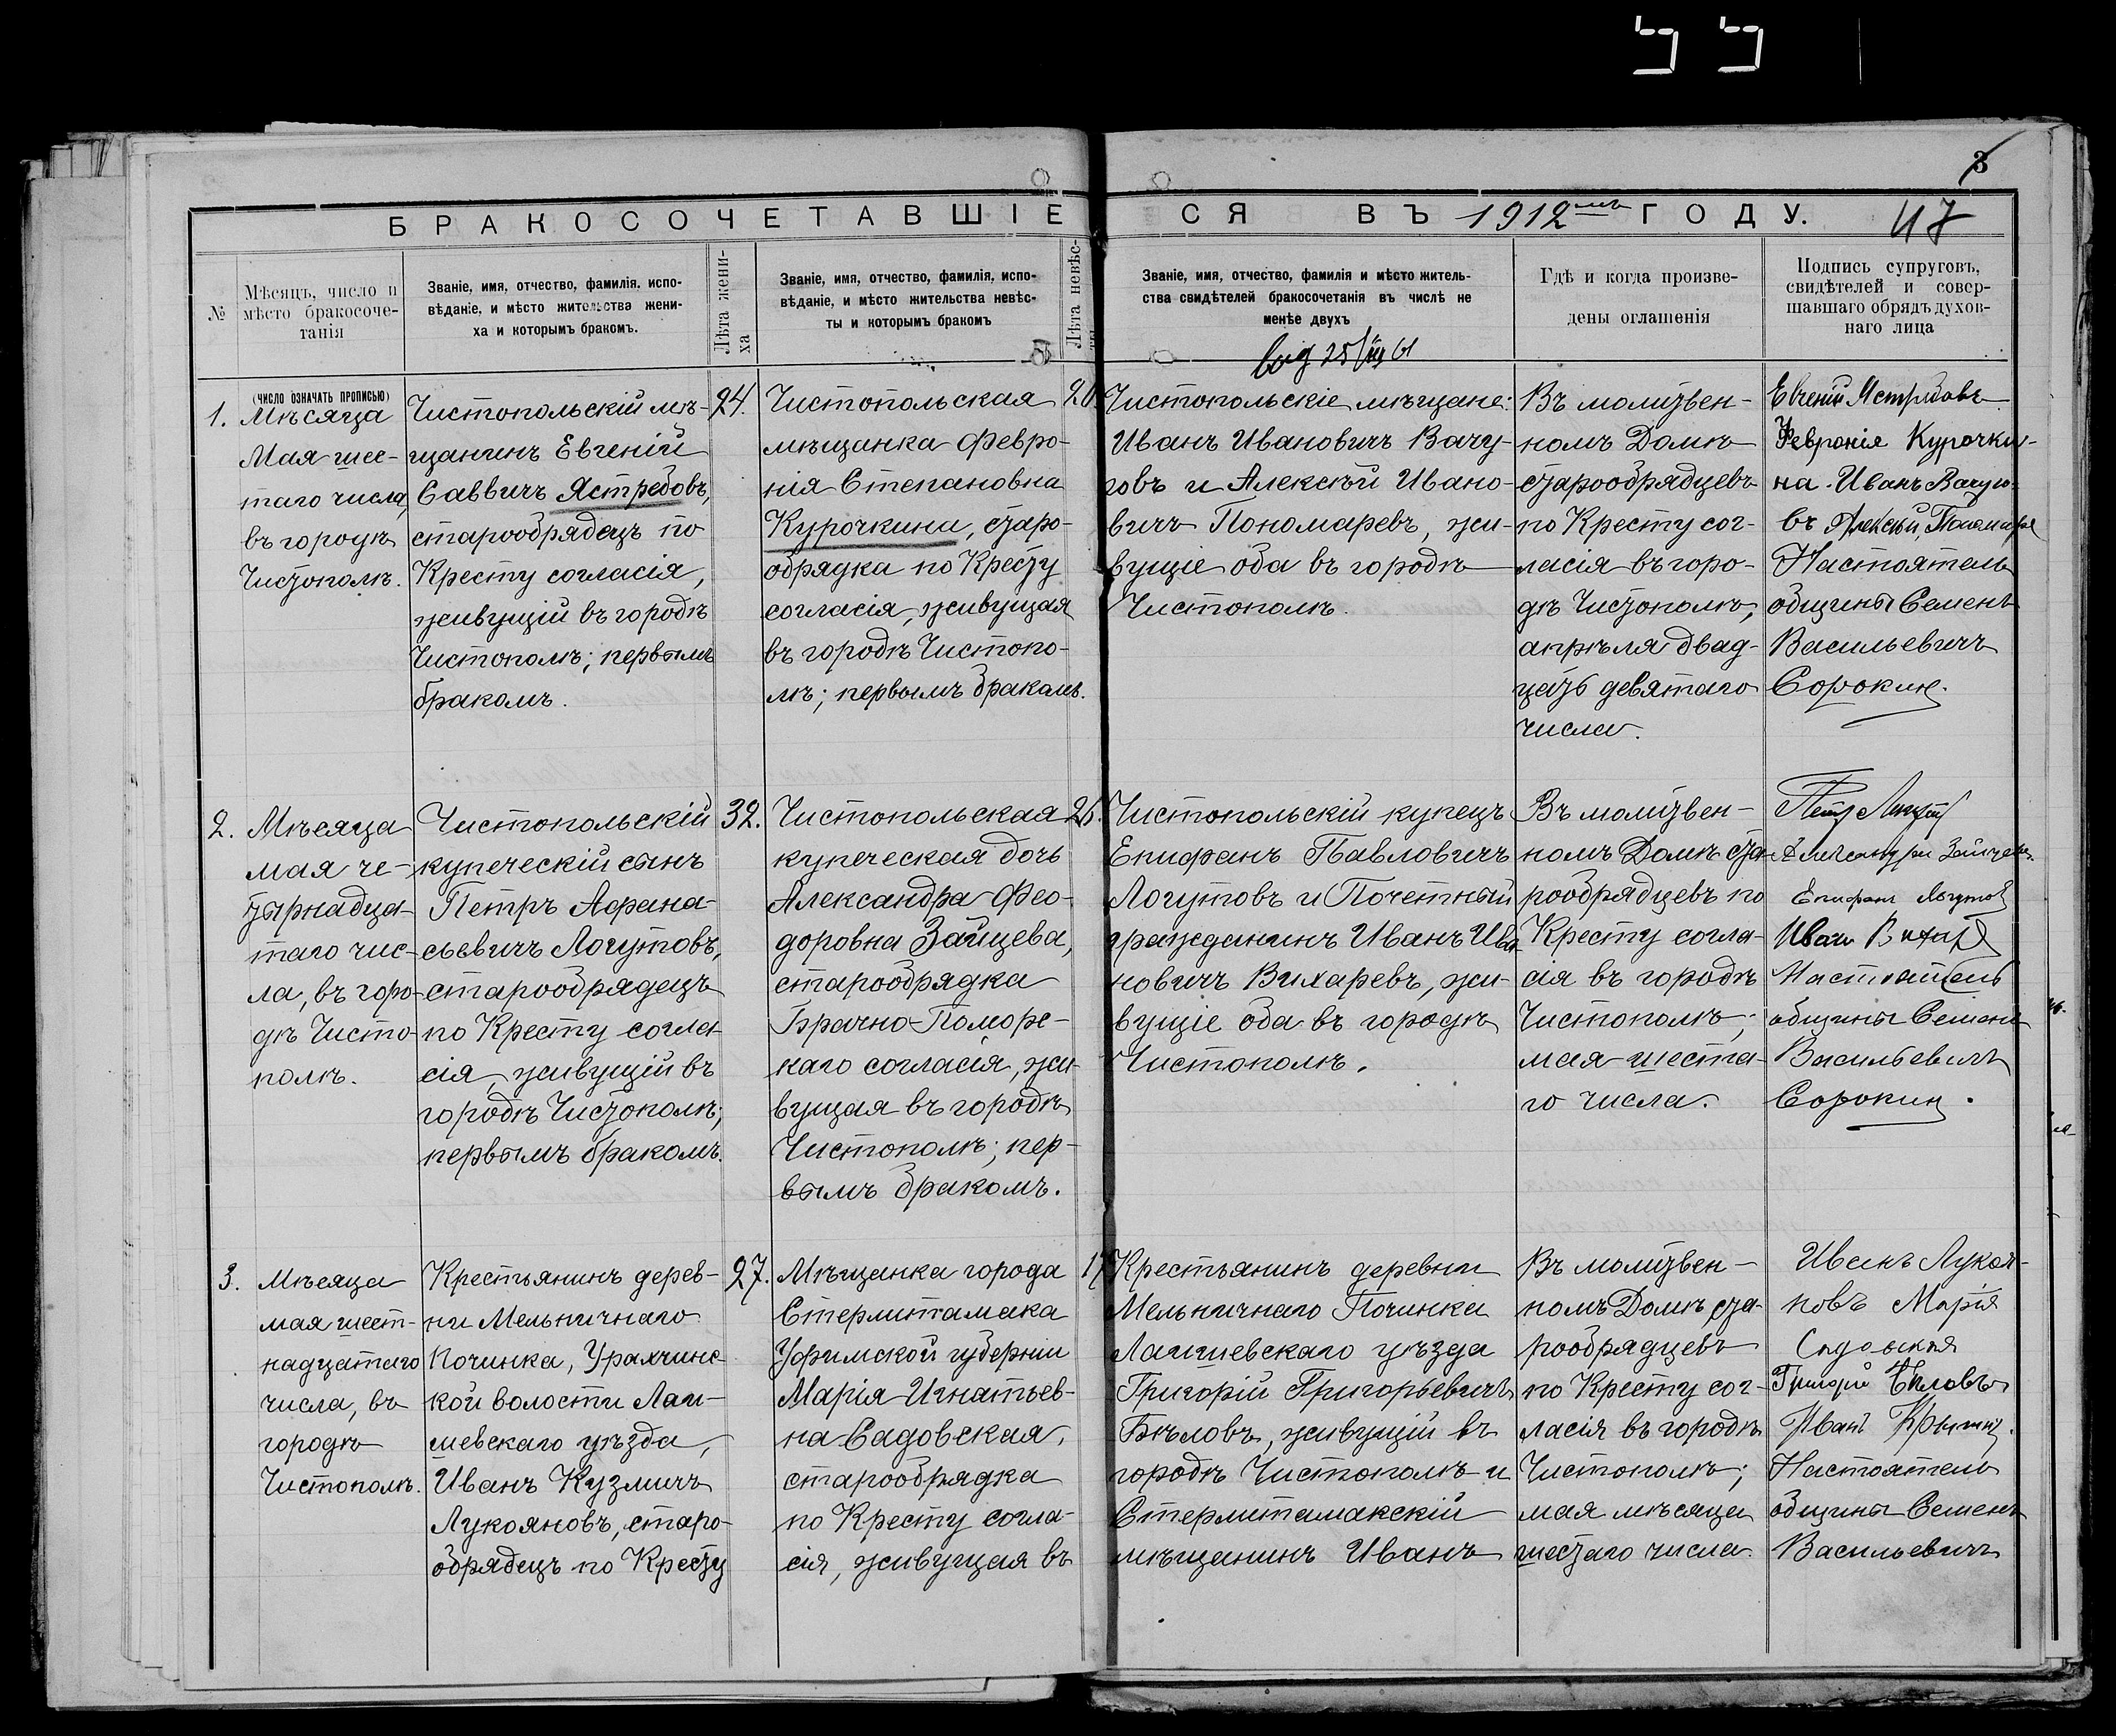 3
БРАКОСОЧЕТАВШІЕСЯ ВЪ 1912мъ ГОДУ.
47
№
Мѣсяцъ, число и
мѣсто бракосоче-
танія
Званіе, имя, отчество, фамилія, испо-
вѣданіе, и мѣсто жительства жени-
ха и которымъ бракомъ.
Лѣта жени-
ха
Званіе, имя, отчество, фамилія, испо-
вѣданіе, и мѣсто жительства невѣс-
ты и которымъ бракомъ
Лѣта невѣс-
ты
Званіе, имя, отчество, фамилія и мѣсто житель-
ства свидѣтелей бракосочетанія въ числѣ не
менѣе двухъ
Гдѣ и когда произве-
дены оглашенія
Подпись супруговъ,
свидѣтелей и совер-
шавшаго обрядъ духов-
наго лица
(ЧИСЛО ОЗНАЧАТЬ ПРОПИСЬЮ)
1.
Мѣсяца
Мая шес-
таго числа,
въ городѣ
Чистополѣ.
Чистопольскій мѣ-
щанинъ Евгеній
Саввичъ Ястребовъ,
старообрядецъ по
Кресту согласія,
живущій въ городѣ
Чистополѣ; первымъ
бракомъ.
24.
Чистопольская
мѣщанка Февро-
нія Степановна
Курочкина, старо-
обрядка по Кресту
согласія, живущая
въ городѣ Чистопо-
лѣ; первымъ бракомъ.
20.
Чистопольскіе мѣщане:
Иванъ Ивановичъ Вачу-
говъ и Алексѣй Ивано-
вичъ Пономаревъ, жи-
вущіе оба въ городѣ
Чистополѣ.
Въ молитвен-
номъ Домѣ
старообрядцевъ
по Кресту сог-
ласія въ горо-
дѣ Чистополѣ,
апрѣля двад-
цать девятаго
числа.
Евгеній Ястребовъ
Февронія Курочки-
на. Иванъ Вачуго-
въ Алексѣй Пономаре
Настоятель
общины Семенъ
Васильевичъ
Сорокин.
2.
Мѣсяца
мая че-
тырнадца-
таго чис-
ла, въ горо-
дѣ Чисто-
полѣ.
Чистопольскій
купеческій сынъ
Петръ Афана-
сьевичъ Логутовъ,
старообрядецъ
по Кресту согла-
сія, живущій въ
городѣ Чистополѣ;
первымъ бракомъ.
32.
Чистопольская
купеческая дочь
Александра Фео-
доровна Зайцева,
старообрядка
Брачно-Поморс-
каго согласія, жи-
вущая въ городѣ
Чистополѣ; пер-
вымъ бракомъ.
26.
Чистопольскій купецъ
Епифанъ Павловичъ
Логутовъ и Почетный
гражданинъ Иванъ Ива-
новичъ Вихаревъ, жи-
вущіе оба въ городѣ
Чистополѣ.
Въ молитвен-
номъ Домѣ ста-
рообрядцевъ по
Кресту согла-
сія въ городѣ
Чистополѣ;
мая шеста-
го числа.
Петр
Александра Зайцева
Епифанъ Логутов
Иванъ
Настоятель
общины Семенъ
Васильевичъ
Сорокин.
3.
Мѣсяца
мая шест-
надцатаго
числа, въ
городѣ
Чистополѣ.
Крестьянинъ дерев-
ни Мельничнаго
Починка, Урахчинс-
кой волости Лаи-
шевскаго уѣзда,
Иванъ Кузмичъ
Лукояновъ, старо-
обрядецъ по Кресту
27.
Мѣщанка города
Стерлитамака
Уфимской губерніи
Марія Игнатьев-
на Садовская,
старообрядка
по Кресту согла-
сія, живущая въ
17
Крестьянинъ деревни
Мельничнаго Починка
Лаишевскаго уѣзда
Григорій Григорьевичъ
Бѣловъ, живущій въ
городѣ Чистополѣ и
Стерлитамакскій
мѣщанинъ Иванъ
Въ молитвен-
номъ Домѣ ста-
рообрядцевъ
по Кресту сог-
ласія въ городѣ
Чистополѣ;
мая мѣсяца
шестаго числа.
Иванъ Лукоя-
новъ Марія
Садовская
Григорій Бѣловъ
Иванъ
Настоятель
общины Семенъ
Васильевичъ